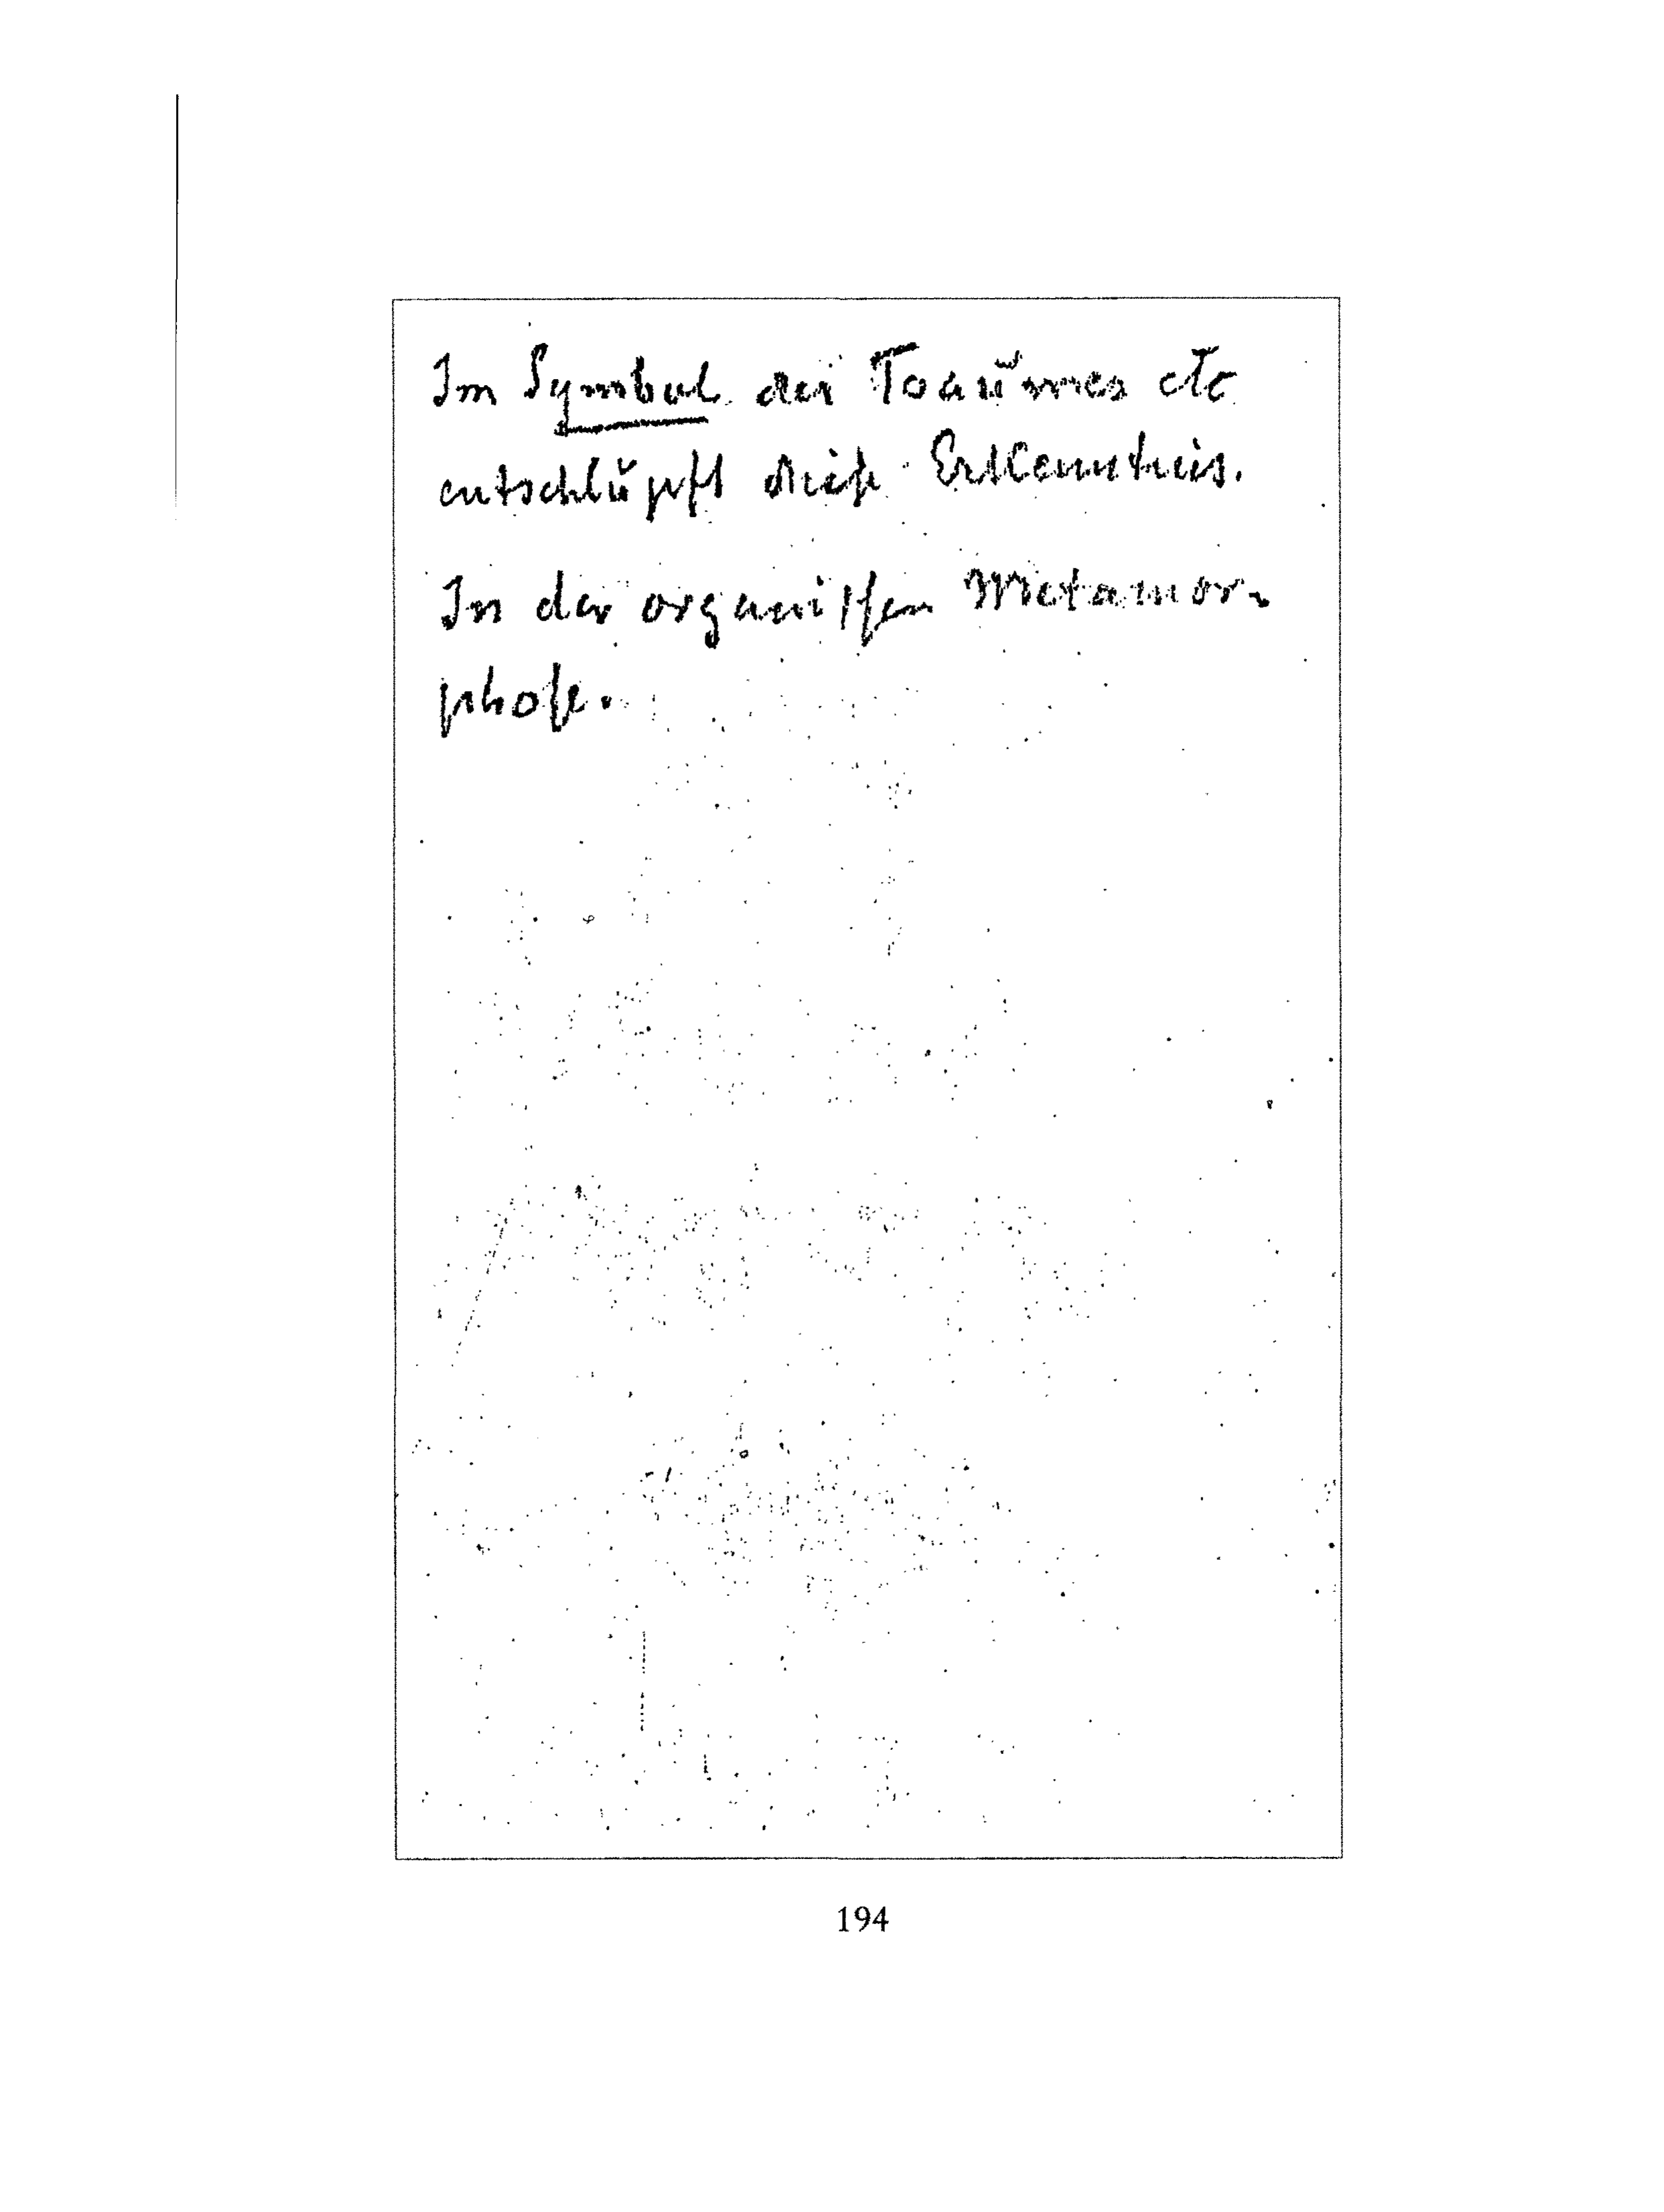 Im Symbol des Traumes etc
entschlüpft diese Erkenntnis.
In der organischen Metamor-
phose.
194